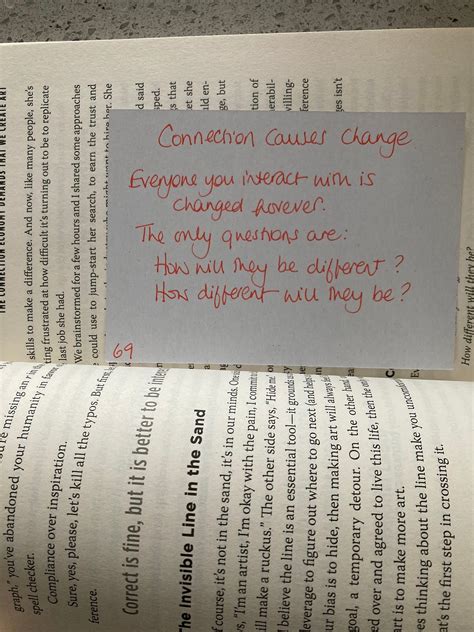 Connection Causes Change.
Everyone you interact with is
changed forever.
The only questions are:
How will they be different?
How different will they be?
69
THE CONNECTION ECONOMY DEMANDS THAT WE CREATE ART
skills to make a difference. And now, like many people, she's
ting frustrated at how difficult it's turning out to be to replicate
last job she had.
We brainstormed for a few hours and I shared some approaches
could use to jump-start her search, to earn the trust and
her. She
d said
that
et she
ge, but
tion of
villing-
ference
ges isn't
How different will they be?
graph," you've abandoned your humanity in
spell checker.
Compliance over inspiration.
Sure, yes, please, let's kill all the typos. But
ference.
Correct is fine, but it is better to be
The Invisible Line in the Sand
f course, it's not in the sand, it's in our minds.
s, "I'm an artist, I'm okay with the pain, I
ill make a ruckus." The other side says, "Hide me
I believe the line is an essential tool—it
leverage to figure out where to go next (and
ur bias is to hide, then making art will always
goal, a temporary detour. On the other
ed over and agreed to live this life, then the
art is to make more art.
es thinking about the line make you
at's the first step in crossing it.